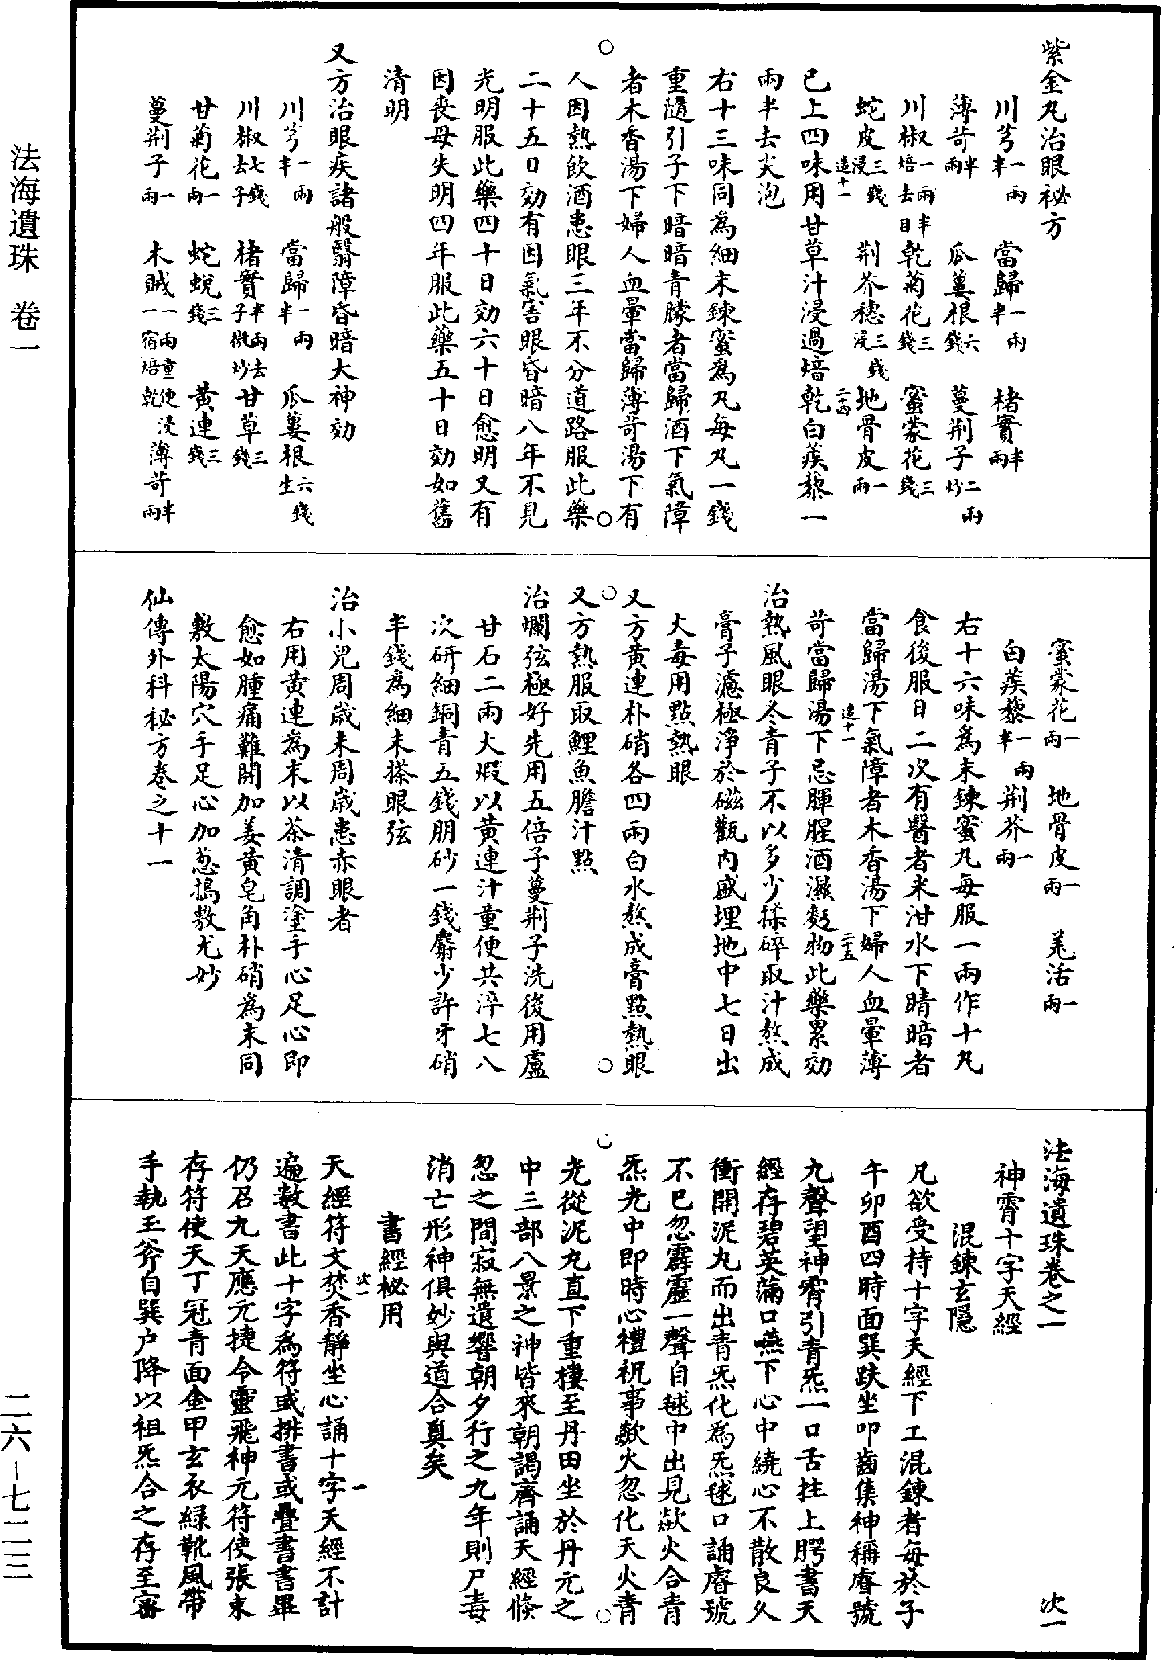 紫金丸治眼祕方
川芎一兩半 當歸一兩半 楮實半兩
薄苛半兩 瓜蔞根六錢 蔓荆子二兩炒
川椒一兩半焙去目 乾菊花三錢 蜜蒙花三錢
蛇皮三錢浸 荆芥穗三錢 地骨皮一兩
已上四味用甘草汁浸過焙乾白蒺藜一
兩半去尖泡
右十三味同為細末鍊蜜為丸每丸一錢
重隨引子下暗暗青朦者當歸酒下氣障
者木香湯下婦人血暈當歸薄苛湯下有
人因熱飲酒患眼三年不分道路服此藥
二十五日効有因氣害眼昏暗八年不見
光明服此藥四十日効六十日愈明又有
因喪母失明四年服此藥五十日効如舊
清明
又方治眼疾諸般翳障昏暗大神効
川芎一兩半 當歸一兩半 瓜蔞根六錢生
川椒七錢去子 楮實半兩去子微炒 甘草三錢
甘菊花一兩 蛇蛻三錢 黃連三錢
蔓荆子一兩 木賊一兩童便浸一宿焙乾 薄苛半兩
蜜蒙花一兩 地骨皮一兩 羌活一兩
白蒺藜一兩半 荆芥一兩
右十六味為末鍊蜜丸每服一兩作十丸
食後服日二次有醫者米泔水下睛暗者
當歸湯下氣障者木香湯下婦人血暈薄
苛當歸湯下忌腪腥酒濕麪物此藥累効
治熱風眼冬青子不以多少揉碎取汁熬成
膏子濾極淨於磁觀内盛埋地中七日出
火毒用點熱眼
又方黃連朴硝各四兩白水熬成膏點熱眼
又方熱服取鯉魚膽汁點
治爛弦極好先用五倍子蔓荆子洗後用盧
甘石二兩大煅以黃連汁童便共淬七八
次研細銅青五錢朋砂一錢麝少許牙硝
半錢為細末搽眼弦
治小兒周歲未周歲患赤眼者
右用黃連為末以茶清調塗手心足心即
愈如腫痛難開加姜黃皂角朴硝為末同
敷太陽穴手足心加葱搗敷尤妙
仙傳外科秘方卷之十一
法海遺珠卷之一 次一
神霄十字天經
混鍊玄隱
凡欲受持十字天經下工混鍊者每於子
午卯酉四時面巽趺坐叩齒集神稱睿號
九聲望神霄引青炁一口舌拄上腭書天
經存碧英滿口嚥下心中繞心不散良久
衝開泥丸而出青炁化為炁毬口誦睿號
不已忽霹靂一聲自毬中出見歘火合青
炁光中即時心禮祝事歘火忽化天火青
光從泥丸直下重樓至丹田坐於丹元之
中三部八景之神皆來朝謁齊誦天經倏
忽之間寂無遺響朝夕行之九年則尸毒
消亡形神俱妙與道合眞矣
書經祕用
天經符文焚香靜坐心誦十字天經不計
遍數書此十字為符或排書或疊書書畢
仍召九天應元捷令靈飛神元符使張束
存符使天丁冠青面金甲玄衣緑靴風帶
手執玉斧自巽户降以祖炁合之存至審
法海遺珠 卷一
二六-七二三